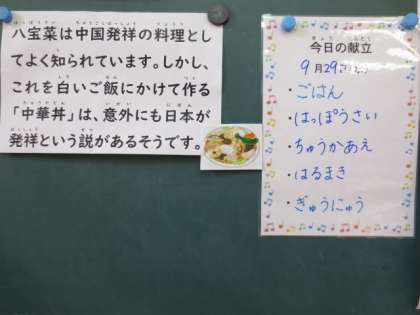 八宝菜は中国発祥の料理とし
てよく知られています。しかし、
これを白いご飯にかけて作る
「中華丼」は、意外にも日本が
発祥という説があるそうです。
今日の献立
9月29日
・ごはん
・はっぽうさい
・ちゅうかあえ
・はるまき
・ぎゅうにゅう